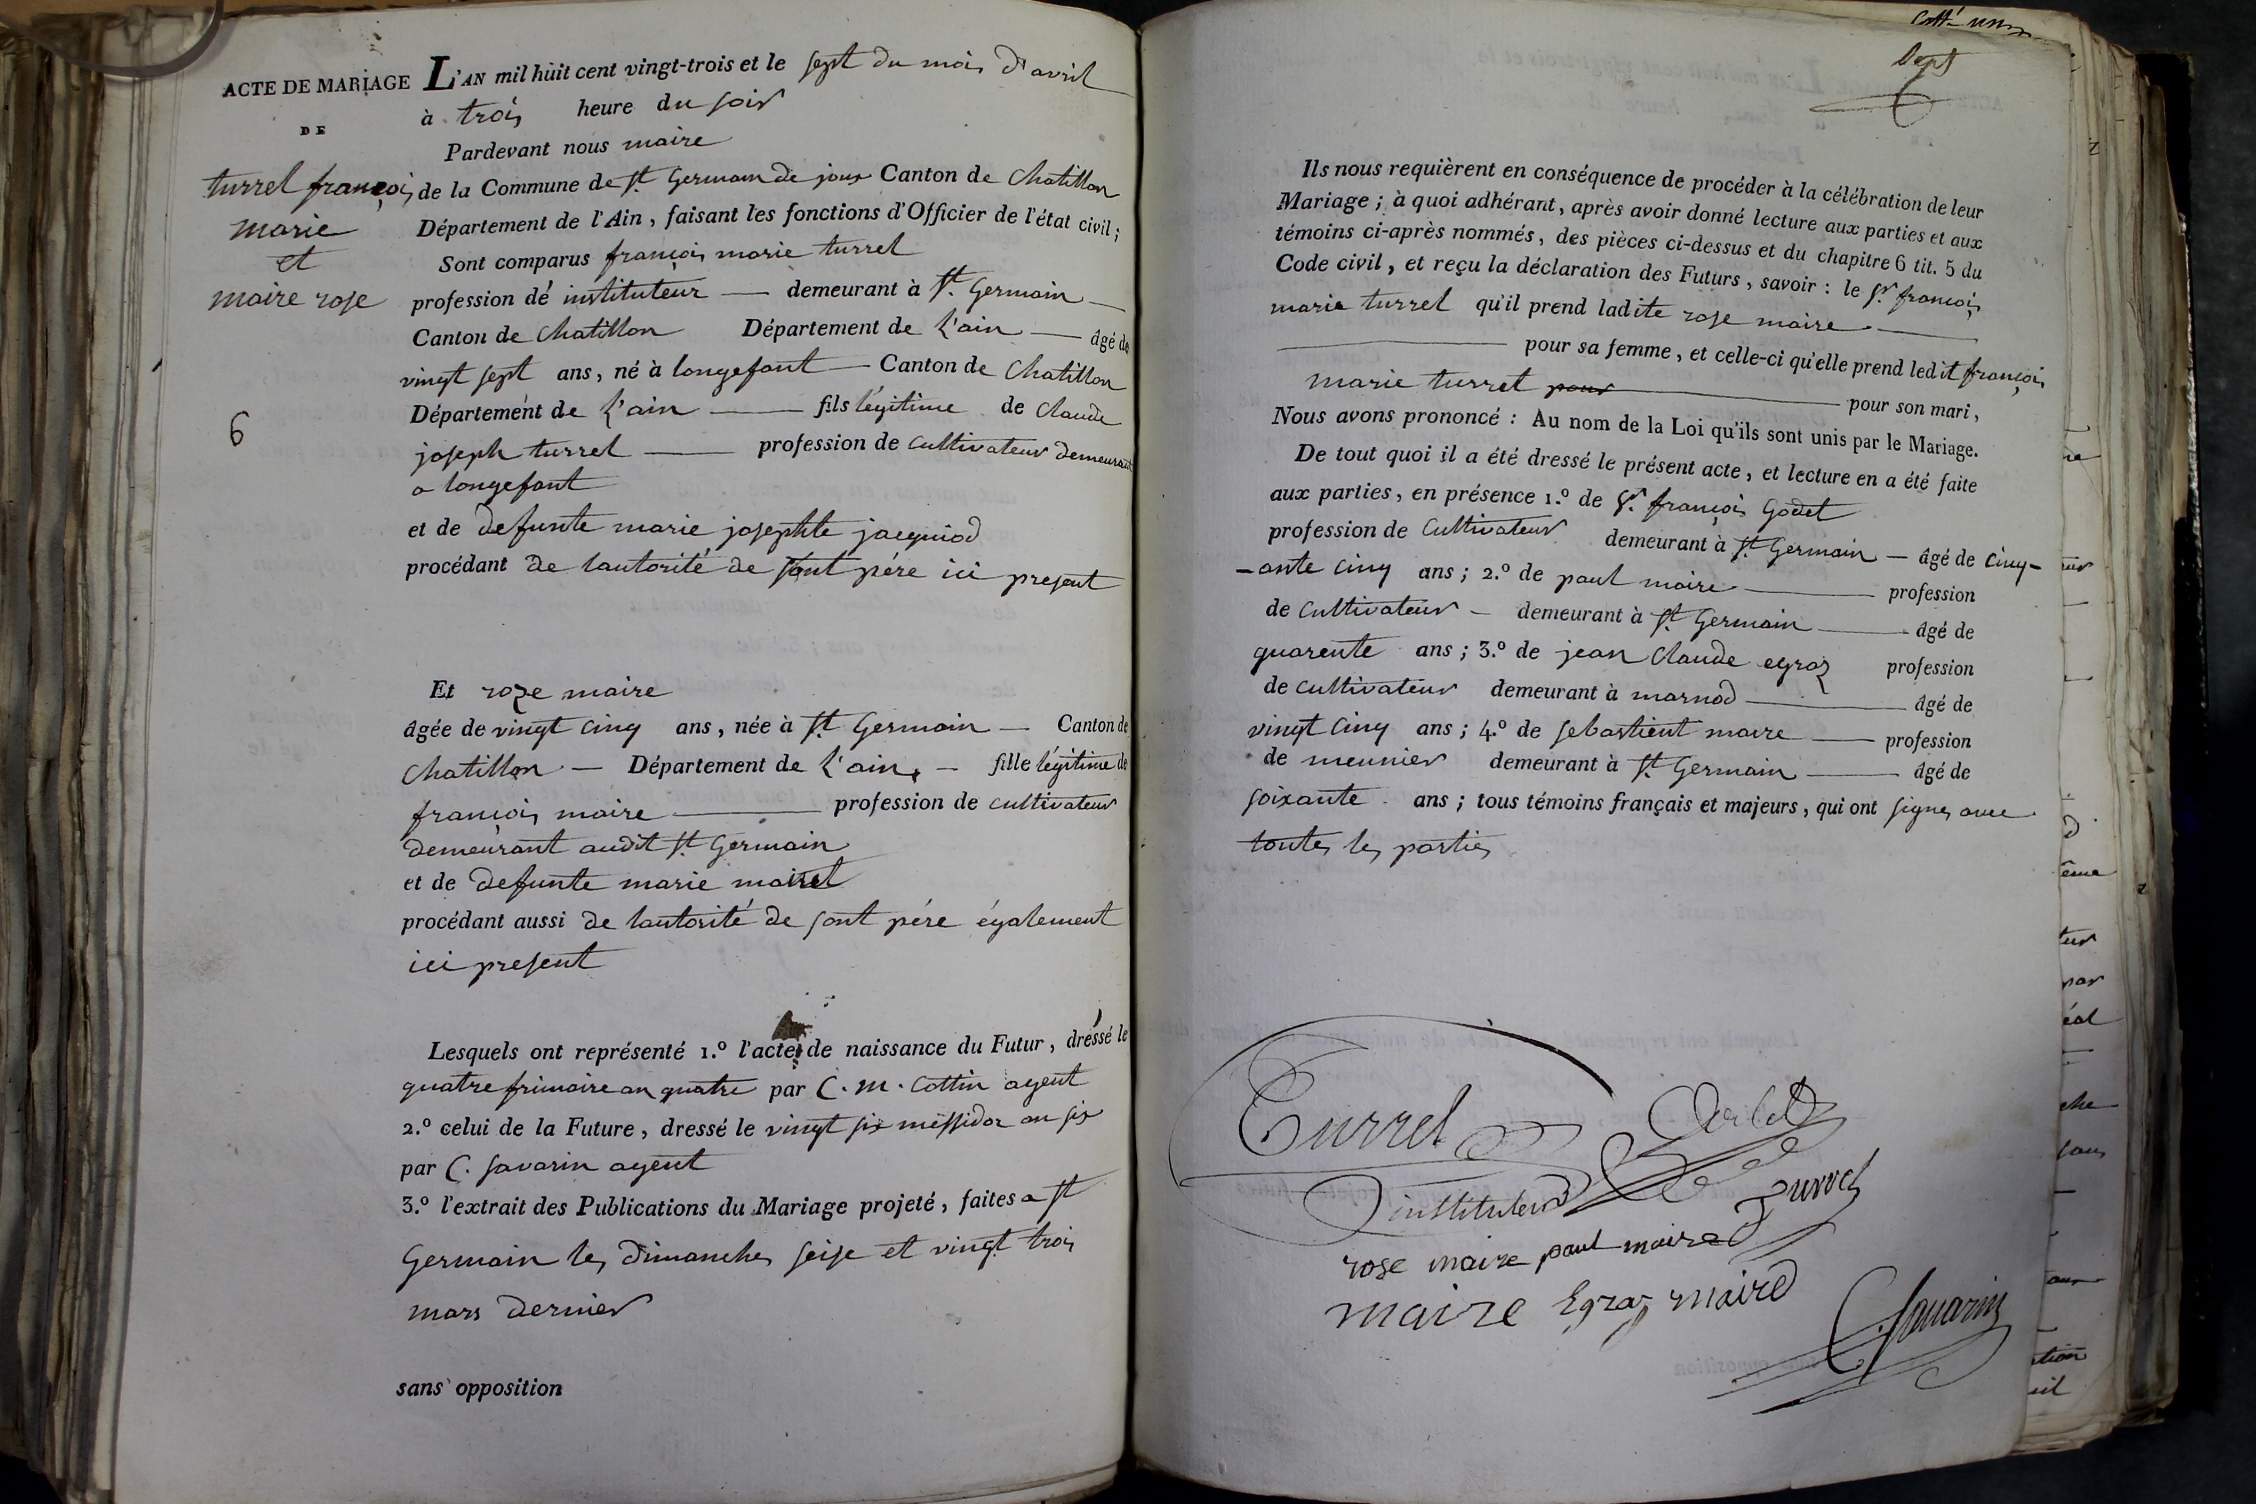 ACTE DE MARIAGE
DE
turrel françois
marie
et
maire rose
6
L'AN mil huit cent vingt-trois et le sept du mois d'avril
à trois heure du soir
Pardevant nous maire
de la Commune de St. Germain de joux Canton de Chatillon
Département de l'Ain, faisant les fonctions d'Officier de l'état civil;
Sont comparus françois marie turrel
profession de instituteur — demeurant à St. Germain —
Canton de Chatillon Département de L'ain — âgé de
vingt sept ans, né à longefant — Canton de Chatillon
Département de L'ain — fils légitime de Claude
joseph turrel — profession de Cultivateur demeurant
a longefant
et de defunte marie josephte jacquiod
procédant de lautorité de sont pére ici present
Et roze maire
âgée de vingt cinq ans, née à St. Germain — Canton de
Chatillon — Département de L'ain, — fille légitime de
françois maire — profession de cultivateur
demeurant audit St. Germain
et de defunte marie mairet
procédant aussi de lautorité de sont pére également
ici present
Lesquels ont représenté 1.º l'acte de naissance du Futur, dressé le
quatre frimaire an quatre par C. M. Cottin agent
2.º celui de la Future, dressé le vingt six messidor an six
par C. Savarin agent
3.º l'extrait des Publications du Mariage projeté, faites a St
Germain les dimanches seise et vingt trois
mars dernier
sans opposition
Sept
Ils nous requièrent en conséquence de procéder à la célébration de leur
Mariage; à quoi adhérant, après avoir donné lecture aux parties et aux
témoins ci-après nommés, des pièces ci-dessus et du chapitre 6 tit. 5 du
Code civil, et reçu la déclaration des Futurs, savoir: le Sr. françois
marie turrel qu'il prend ladite rose maire —
— pour sa femme, et celle-ci qu'elle prend ledit françois
marie turrel pour — pour son mari,
Nous avons prononcé: Au nom de la Loi qu'ils sont unis par le Mariage.
De tout quoi il a été dressé le présent acte, et lecture en a été faite
aux parties, en présence 1.º de Sr. françois Godet
profession de Cultivateur demeurant à St. Germain — âgé de Cinq-
-ante Cinq ans; 2.º de paul maire — profession
de Cultivateur — demeurant à St. Germain — âgé de
quarente ans; 3.º de jean Claude egraz profession
de Cultivateur demeurant à marnod — âgé de
vingt Cinq ans; 4.º de sebastient maire — profession
de meunier demeurant à St. Germain — âgé de
soixante ans; tous témoins français et majeurs, qui ont signes avec
toutes les parties
Turrel
instituteur
rose maire paul maire
maire Egraz maire
C. Savarin